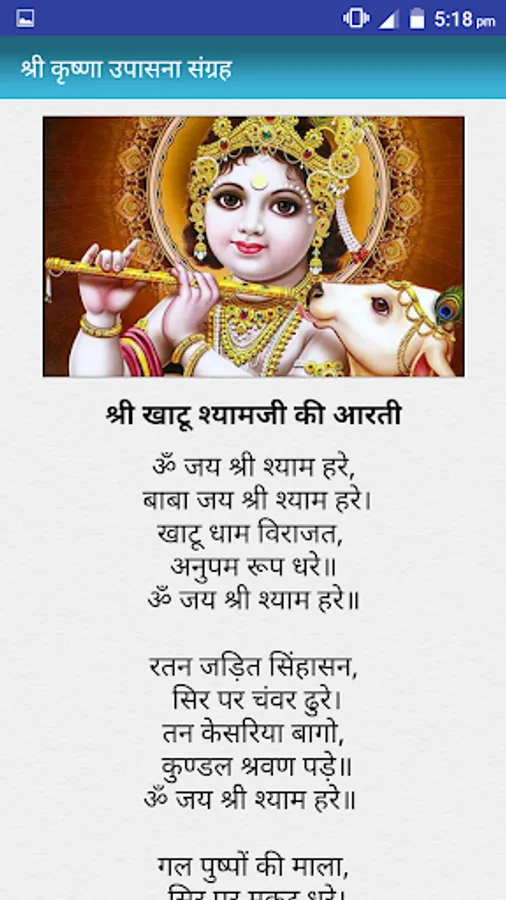 5:18 pm
श्री कृष्णा उपासना संग्रह
श्री खाटू श्यामजी की आरती
ॐ जय श्री श्याम हरे,
बाबा जय श्री श्याम हरे।
खाटू धाम विराजत,
अनुपम रूप धरे॥
ॐ जय श्री श्याम हरे॥
रतन जड़ित सिंहासन,
सिर पर चंवर ढुरे।
तन केसरिया बागो,
कुण्डल श्रवण पड़े॥
ॐ जय श्री श्याम हरे॥
गल पुष्पों की माला,
सिर पर मुकुट धरे।